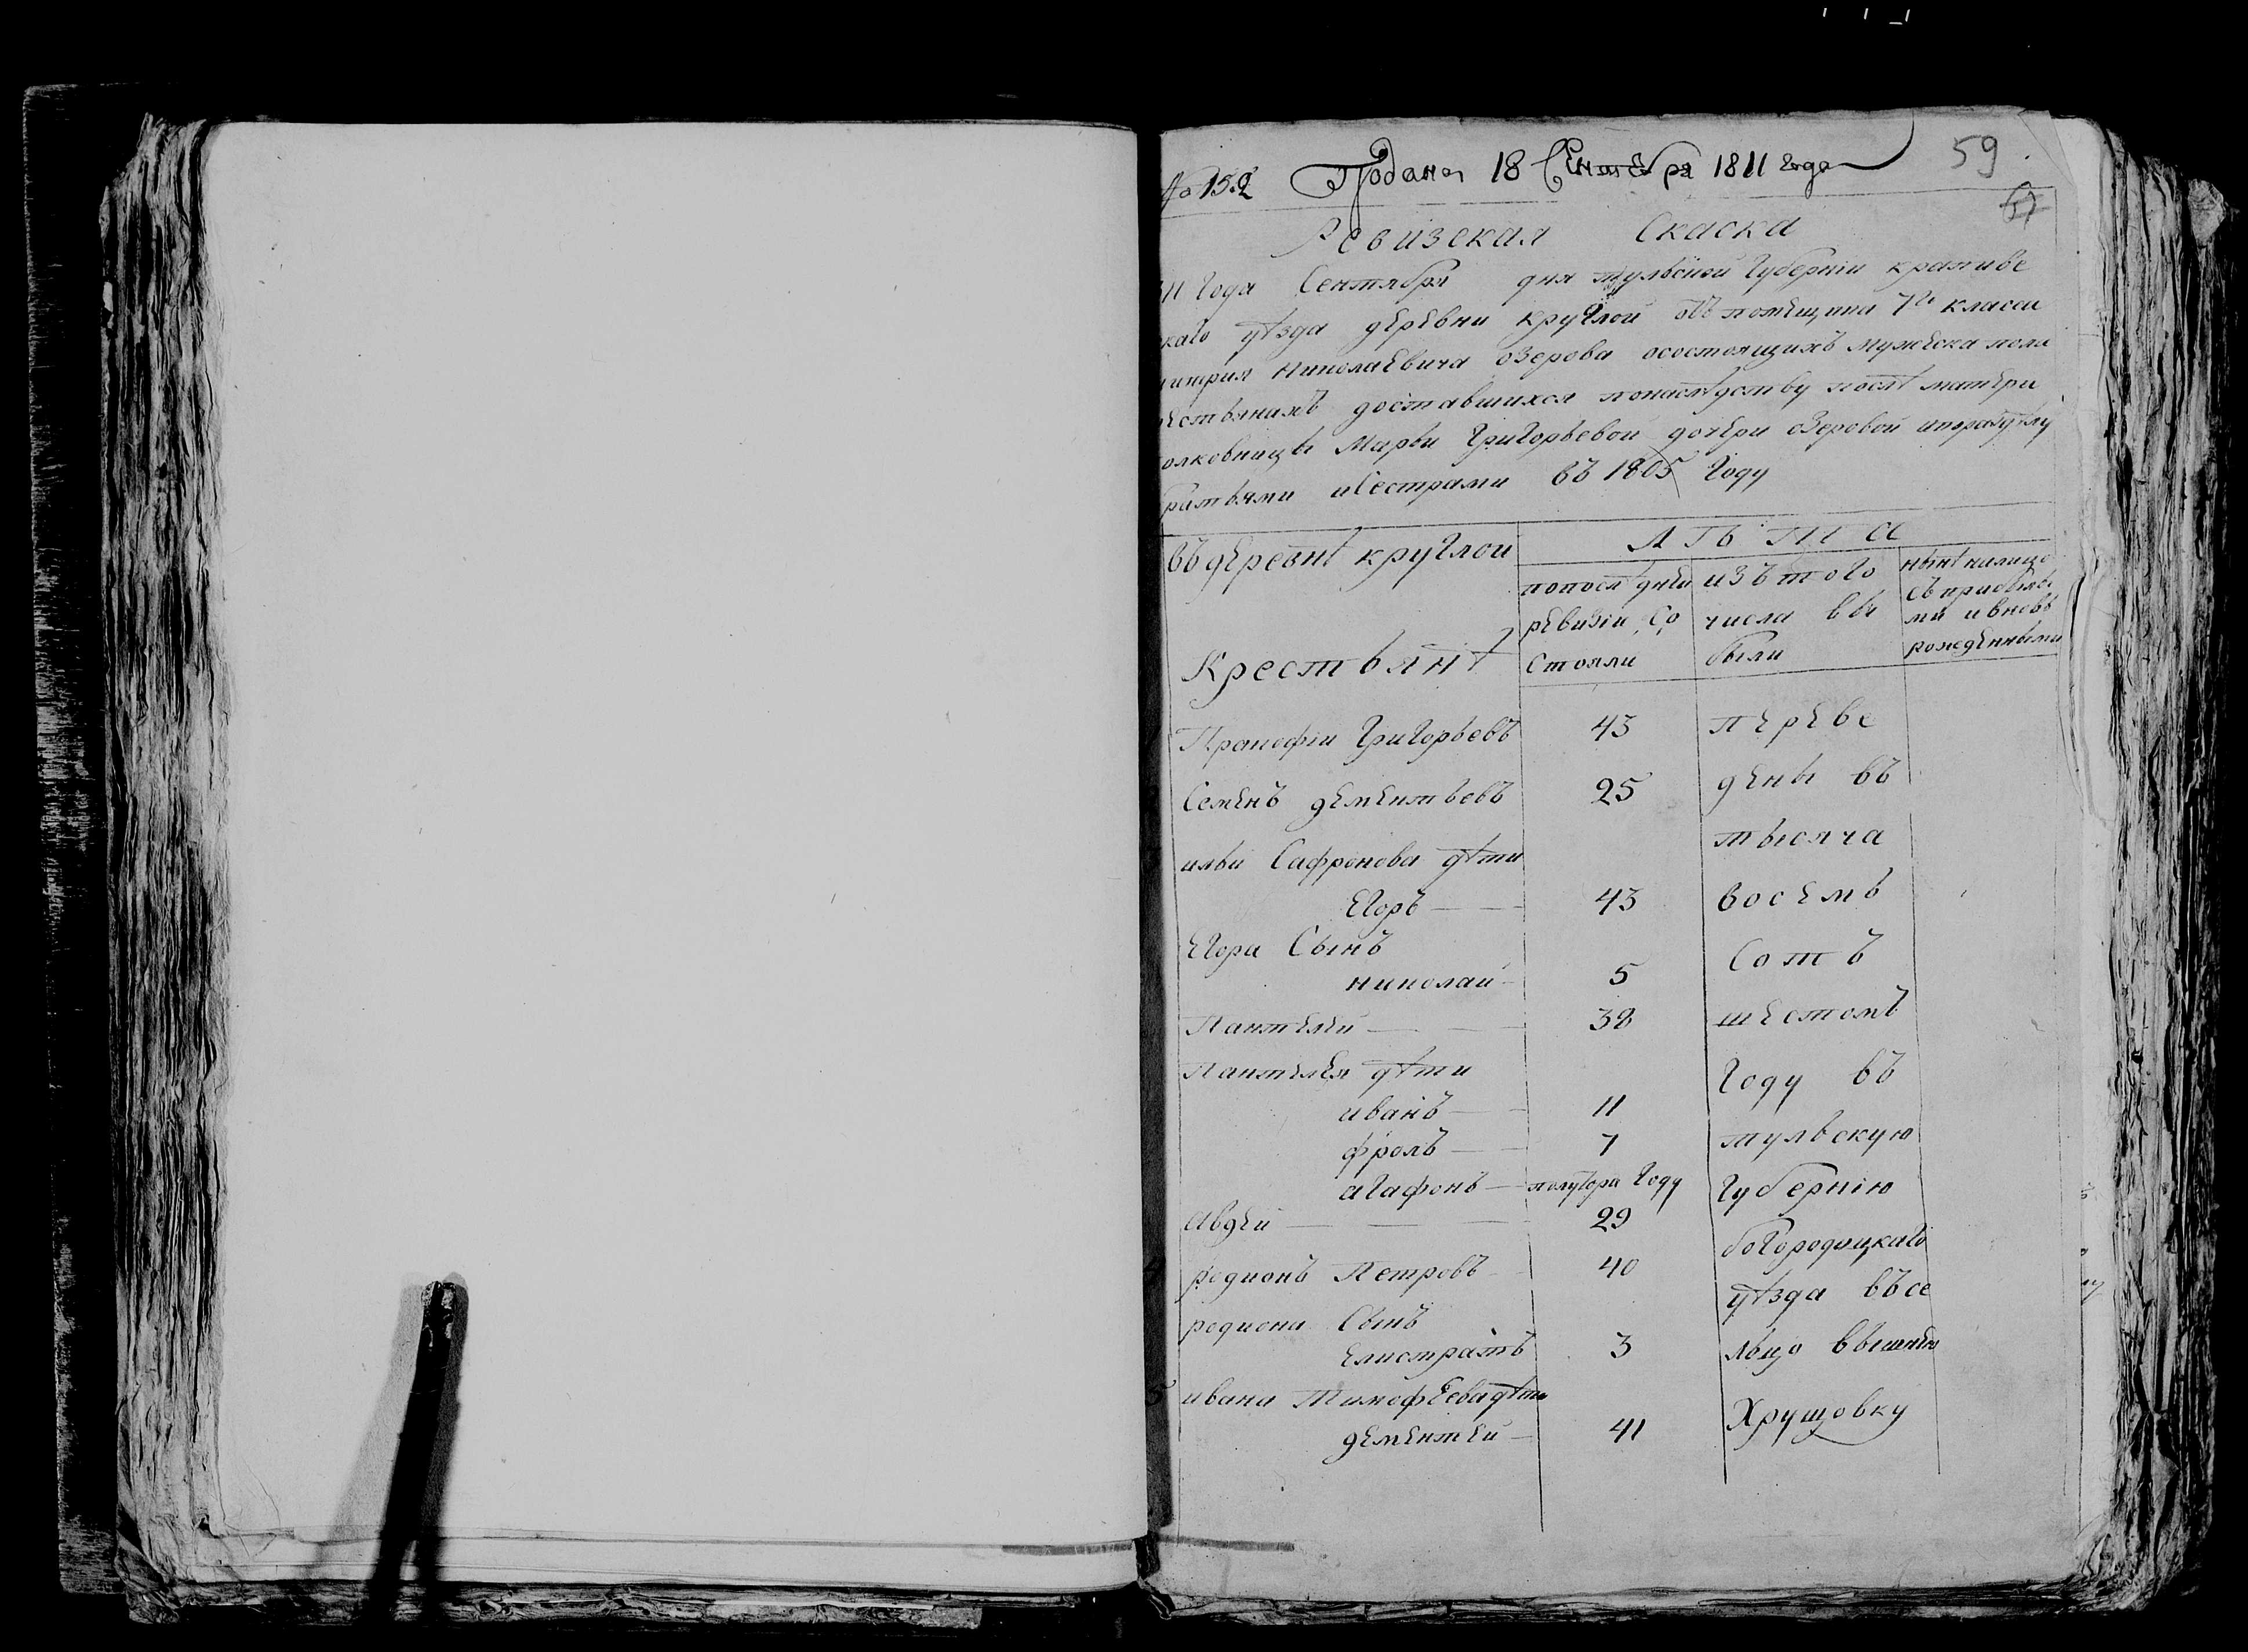 № 152 Подана 18 Сентебря 1811 года
59
Ревизская Скаска
11 Года Сентября дня тульской Губерніи крапиве
каго уѣзда дЕрЕвни круглой отъ помЕщика 7го класса
митрия николаЕвича озерова осостоящихъ мужЕска пола
Естьянихъ доставшихся понаслѣдству послѣ матЕри
олковницы Марьи Григорьевой дочЕри озеровой ипораздѣлу
братьями иСестрами въ 1805 Году
въ дЕревнѣ круглой
Л Ѣ Т А
попослѣднЕи
рЕвизіи Со
Стояли
изъ того
числа вы
были
нынѣ налицо
съ прибылы
ми ивновь
рождЕнными
Крестьянѣ
Пракофіи Григорьевъ 43 пЕрЕве
СемЕнъ дЕмЕнтьевъ 25 дЕны въ
ильи Сафронова дѣти тысяча
ЕГоръ 43 восЕмь
ЕГора Сынъ Сотъ
николаи 5
ПантЕлЕй 38 шЕстомъ
ПантЕлЕя дѣти Году въ
иванъ 11
фролъ 7 тульскую
аГафонъ полутора Году Губернію
АвдЕй 29
боГородицкаго
4 родионъ Петровъ 40
родиона Сынъ уѣзда въ се
Елистратъ 3 льцо вышнЕю
5 ивана ТимофЕева дѣти
дЕмЕнтЕй 41 Хрущовку